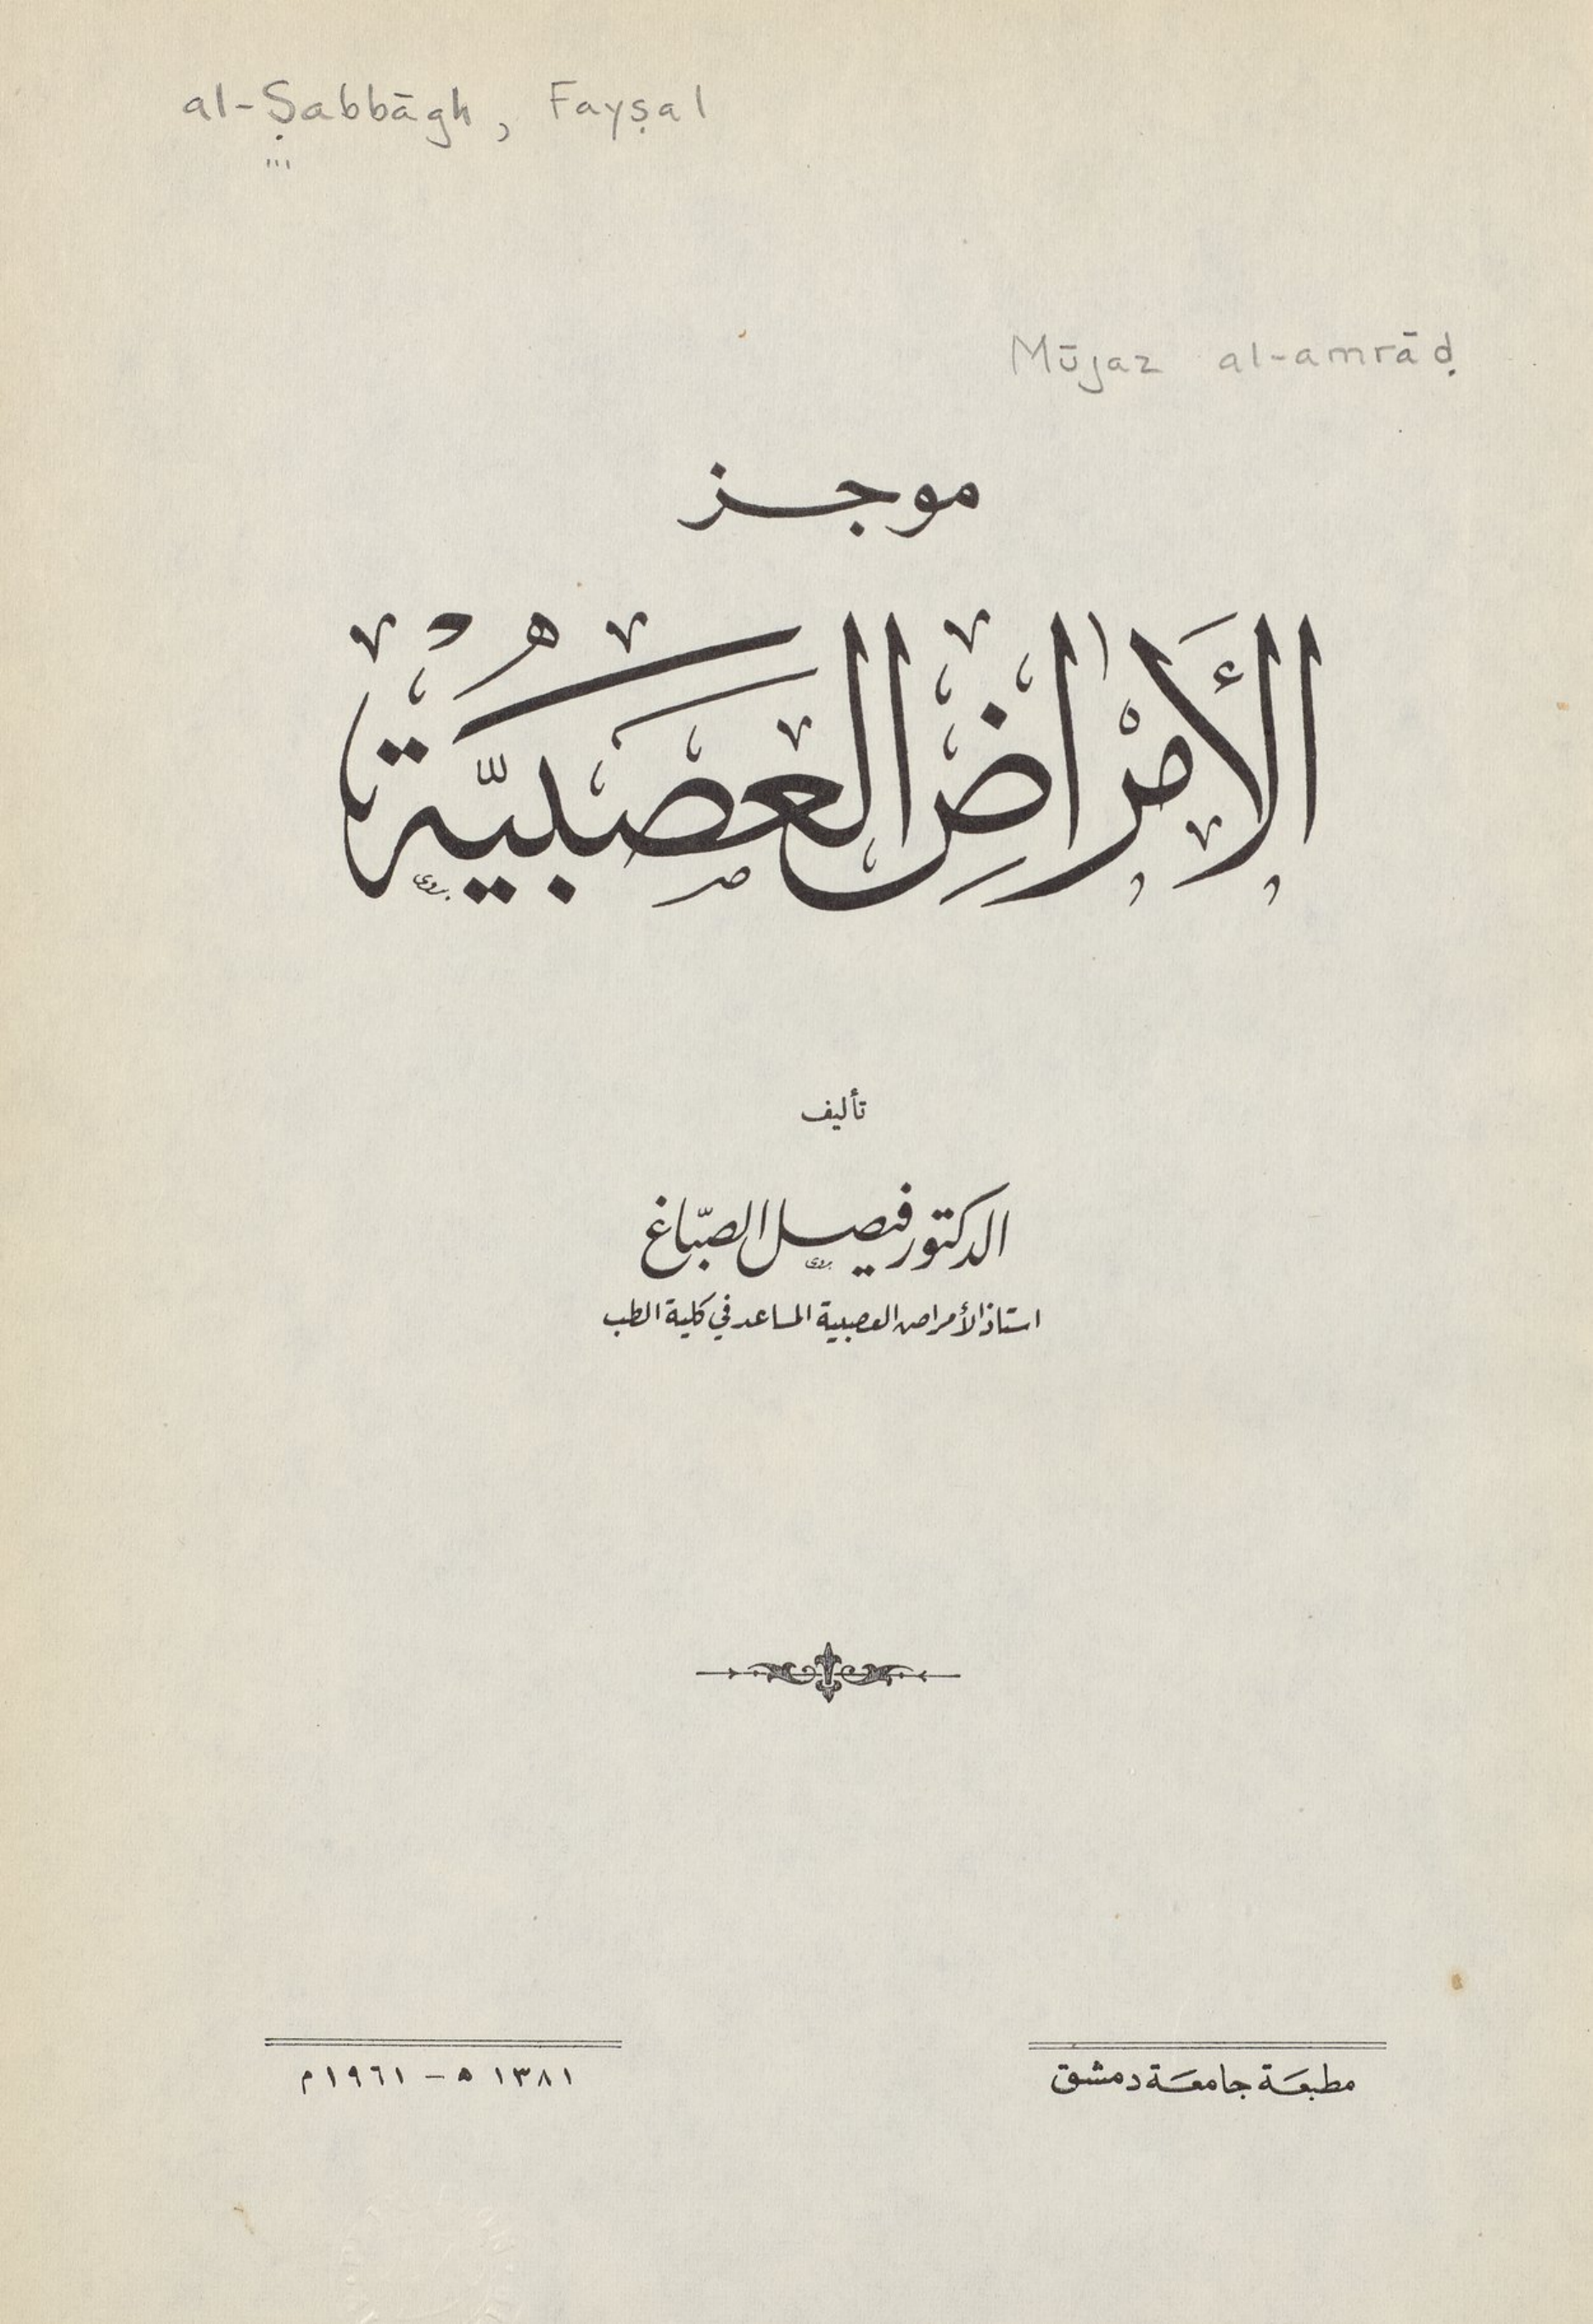 al-Ṣabbāgh, Fayṣal
Mūjaz al-amrāḍ
موجز
الأَمْرَاضِ العَصَبِيَّة
تأليف
الدكتور فيصل الصبّاغ
استاذ الأمراض العصبية المساعد في كلية الطب
مطبعة جامعة دمشق
١٣٨١ ه – ١٩٦١ م